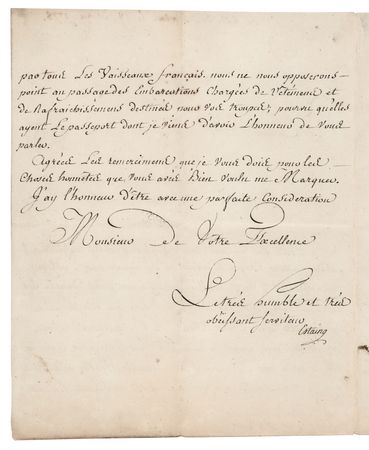 par tous Les Vaisseaux français. nous ne nous opposerons
point au passage des Embarcations Chargées de Vetemens et
de Rafraichissemens destinés pour vos troupes; pourvu qu'elles
ayent Le passeport dont je viens d'avoir L'honneur de Vous
parler.
Agréés Les remercimens que je Vous dois pour les
Choses honnêtes que Vous avés Bien Voulu me Marquer.
J'ay l'honneur D'être avec une parfaite Consideration
Monsieur De Votre Excellence
Le très humble et très
obéissant serviteur
Estaing